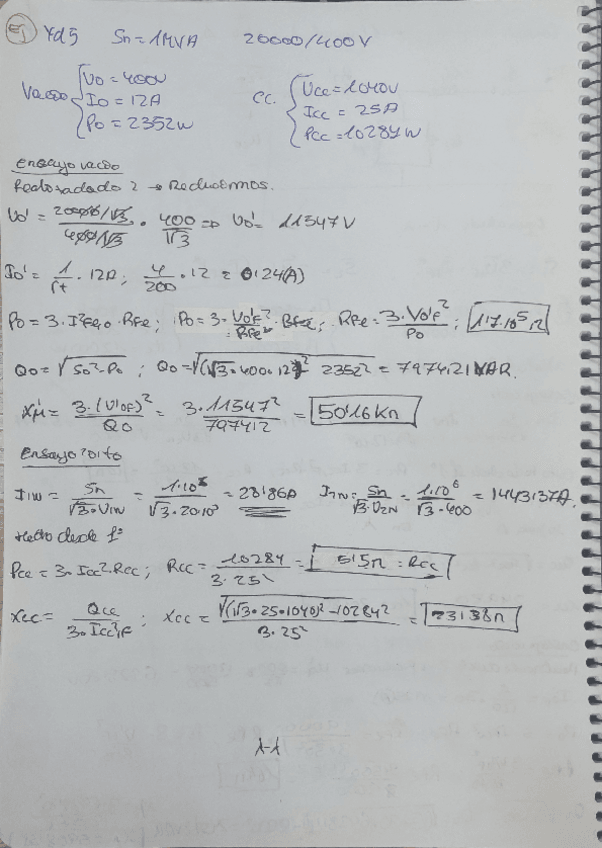 E1 Yd5 Sn=1MVA 20000/400V
Vacío { Uo=400V
Io=12A
Po=2352W
cc. { Ucc=1040V
Icc=25A
Pcc=10284W
ensayo vacío
Hecho x lado 2 → Reducimos.
Uo'= (20000/√3)/(400/√3) · 400/√3 ⇒ Uo'= 11547V
Io'= 1/rt · 12A; 4/200 · 12 = 0'24(A)
Po=3·I²Fe,o·RFe; Po=3·Vo'F²/RFe² · RFe; RFe= 3·Vo'F²/Po; 1'7·10⁵Ω
Qo=√So²-Po; Qo=√(√3·400·12)² 2352² = 7974'21VAR.
Xμ'= 3·(U'oF)²/Qo = 3·11547²/7974'2 = 50'16KΩ
Ensayo ccito
I1N= Sn/√3·U1N = 1·10⁶/√3·20·10³ = 28'86A I2N= Sn/√3·U2N = 1·10⁶/√3·400 = 1443'37A.
Hecho desde 1º
Pcc=3·Icc²·Rcc; Rcc= 10284/3·25² = 5'5Ω=Rcc
Xcc= Qcc/3·Icc²1F; Xcc= √(√3·25·1040)²-10284²/3·25² = 23'38Ω
λ-λ